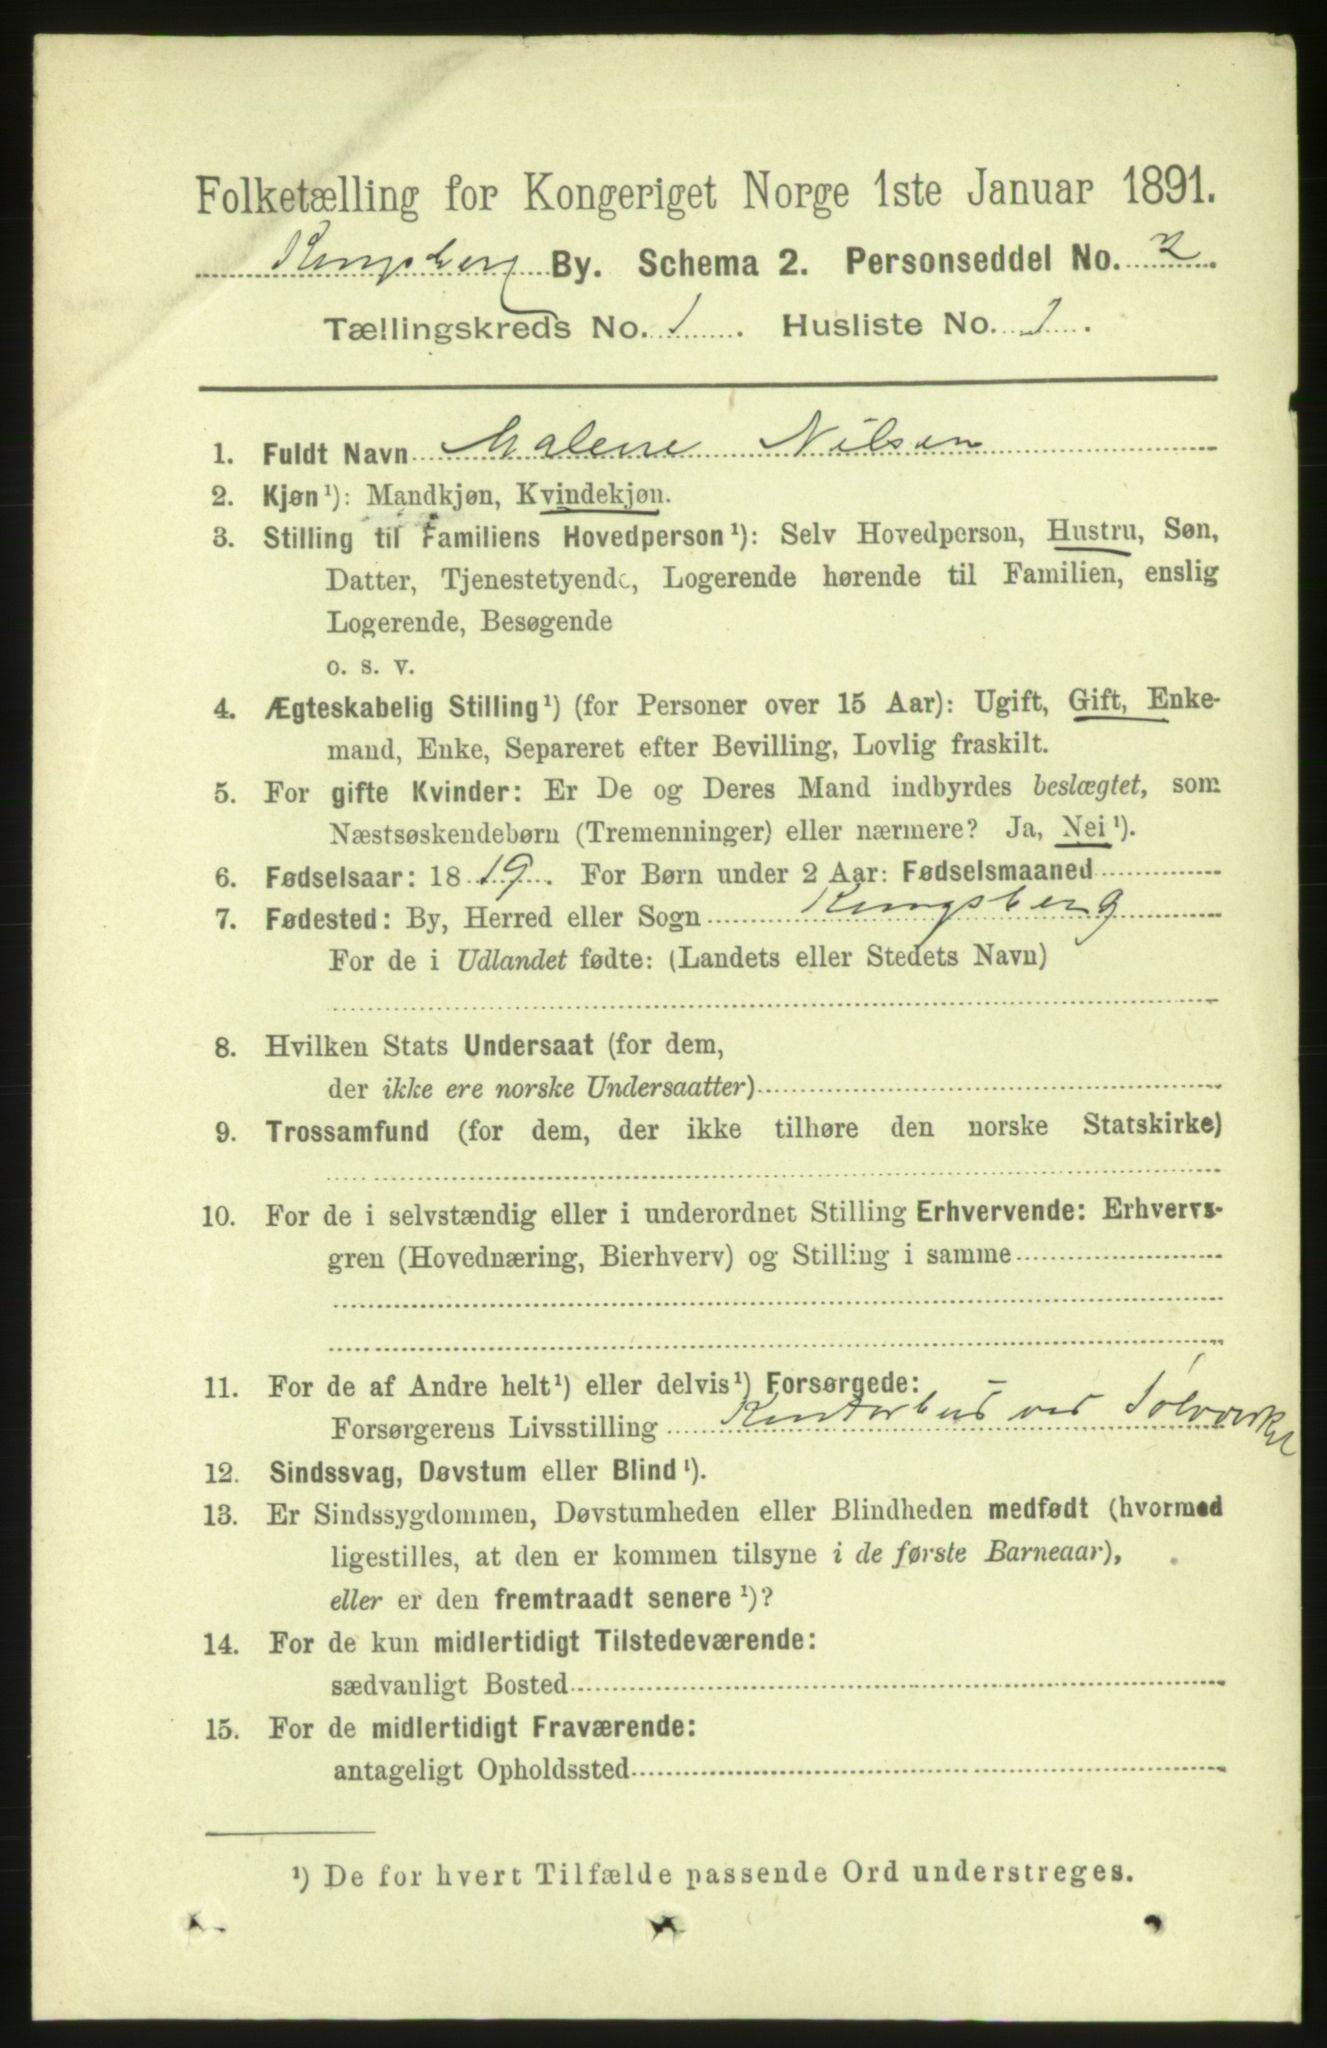 Folketælling for Kongeriget Norge 1ste Januar 1891.
Kongsberg By. Schema 2. Personseddel No. 2.
Tællingskreds No. 1. Husliste No. 1.
1. Fuldt Navn Malene Nilsen
2. Kjøn¹): Mandkjøn, Kvindekjøn.
3. Stilling til Familiens Hovedperson¹): Selv Hovedperson, Hustru, Søn,
Datter, Tjenestetyende, Logerende hørende til Familien, enslig
Logerende, Besøgende
o. s. v.
4. Ægteskabelig Stilling¹) (for Personer over 15 Aar): Ugift, Gift, Enke-
mand, Enke, Separeret efter Bevilling, Lovlig fraskilt.
5. For gifte Kvinder: Er De og Deres Mand indbyrdes beslægtet, som
Næstsøskendebørn (Tremenninger) eller nærmere? Ja, Nei¹).
6. Fødselsaar: 1819. For Børn under 2 Aar: Fødselsmaaned
7. Fødested: By, Herred eller Sogn Kongsberg
For de i Udlandet fødte: (Landets eller Stedets Navn)
8. Hvilken Stats Undersaat (for dem,
der ikke ere norske Undersaatter)
9. Trossamfund (for dem, der ikke tilhøre den norske Statskirke)
10. For de i selvstændig eller i underordnet Stilling Erhvervende: Erhvervs-
gren (Hovednæring, Bierhverv) og Stilling i samme
11. For de af Andre helt¹) eller delvis¹) Forsørgede:
Forsørgerens Livsstilling Kontorbud ved Sølvverket
12. Sindssvag, Døvstum eller Blind¹).
13. Er Sindssygdommen, Døvstumheden eller Blindheden medfødt (hvormed
ligestilles, at den er kommen tilsyne i de første Barneaar),
eller er den fremtraadt senere¹)?
14. For de kun midlertidigt Tilstedeværende:
sædvanligt Bosted
15. For de midlertidigt Fraværende:
antageligt Opholdssted
¹) De for hvert Tilfælde passende Ord understreges.